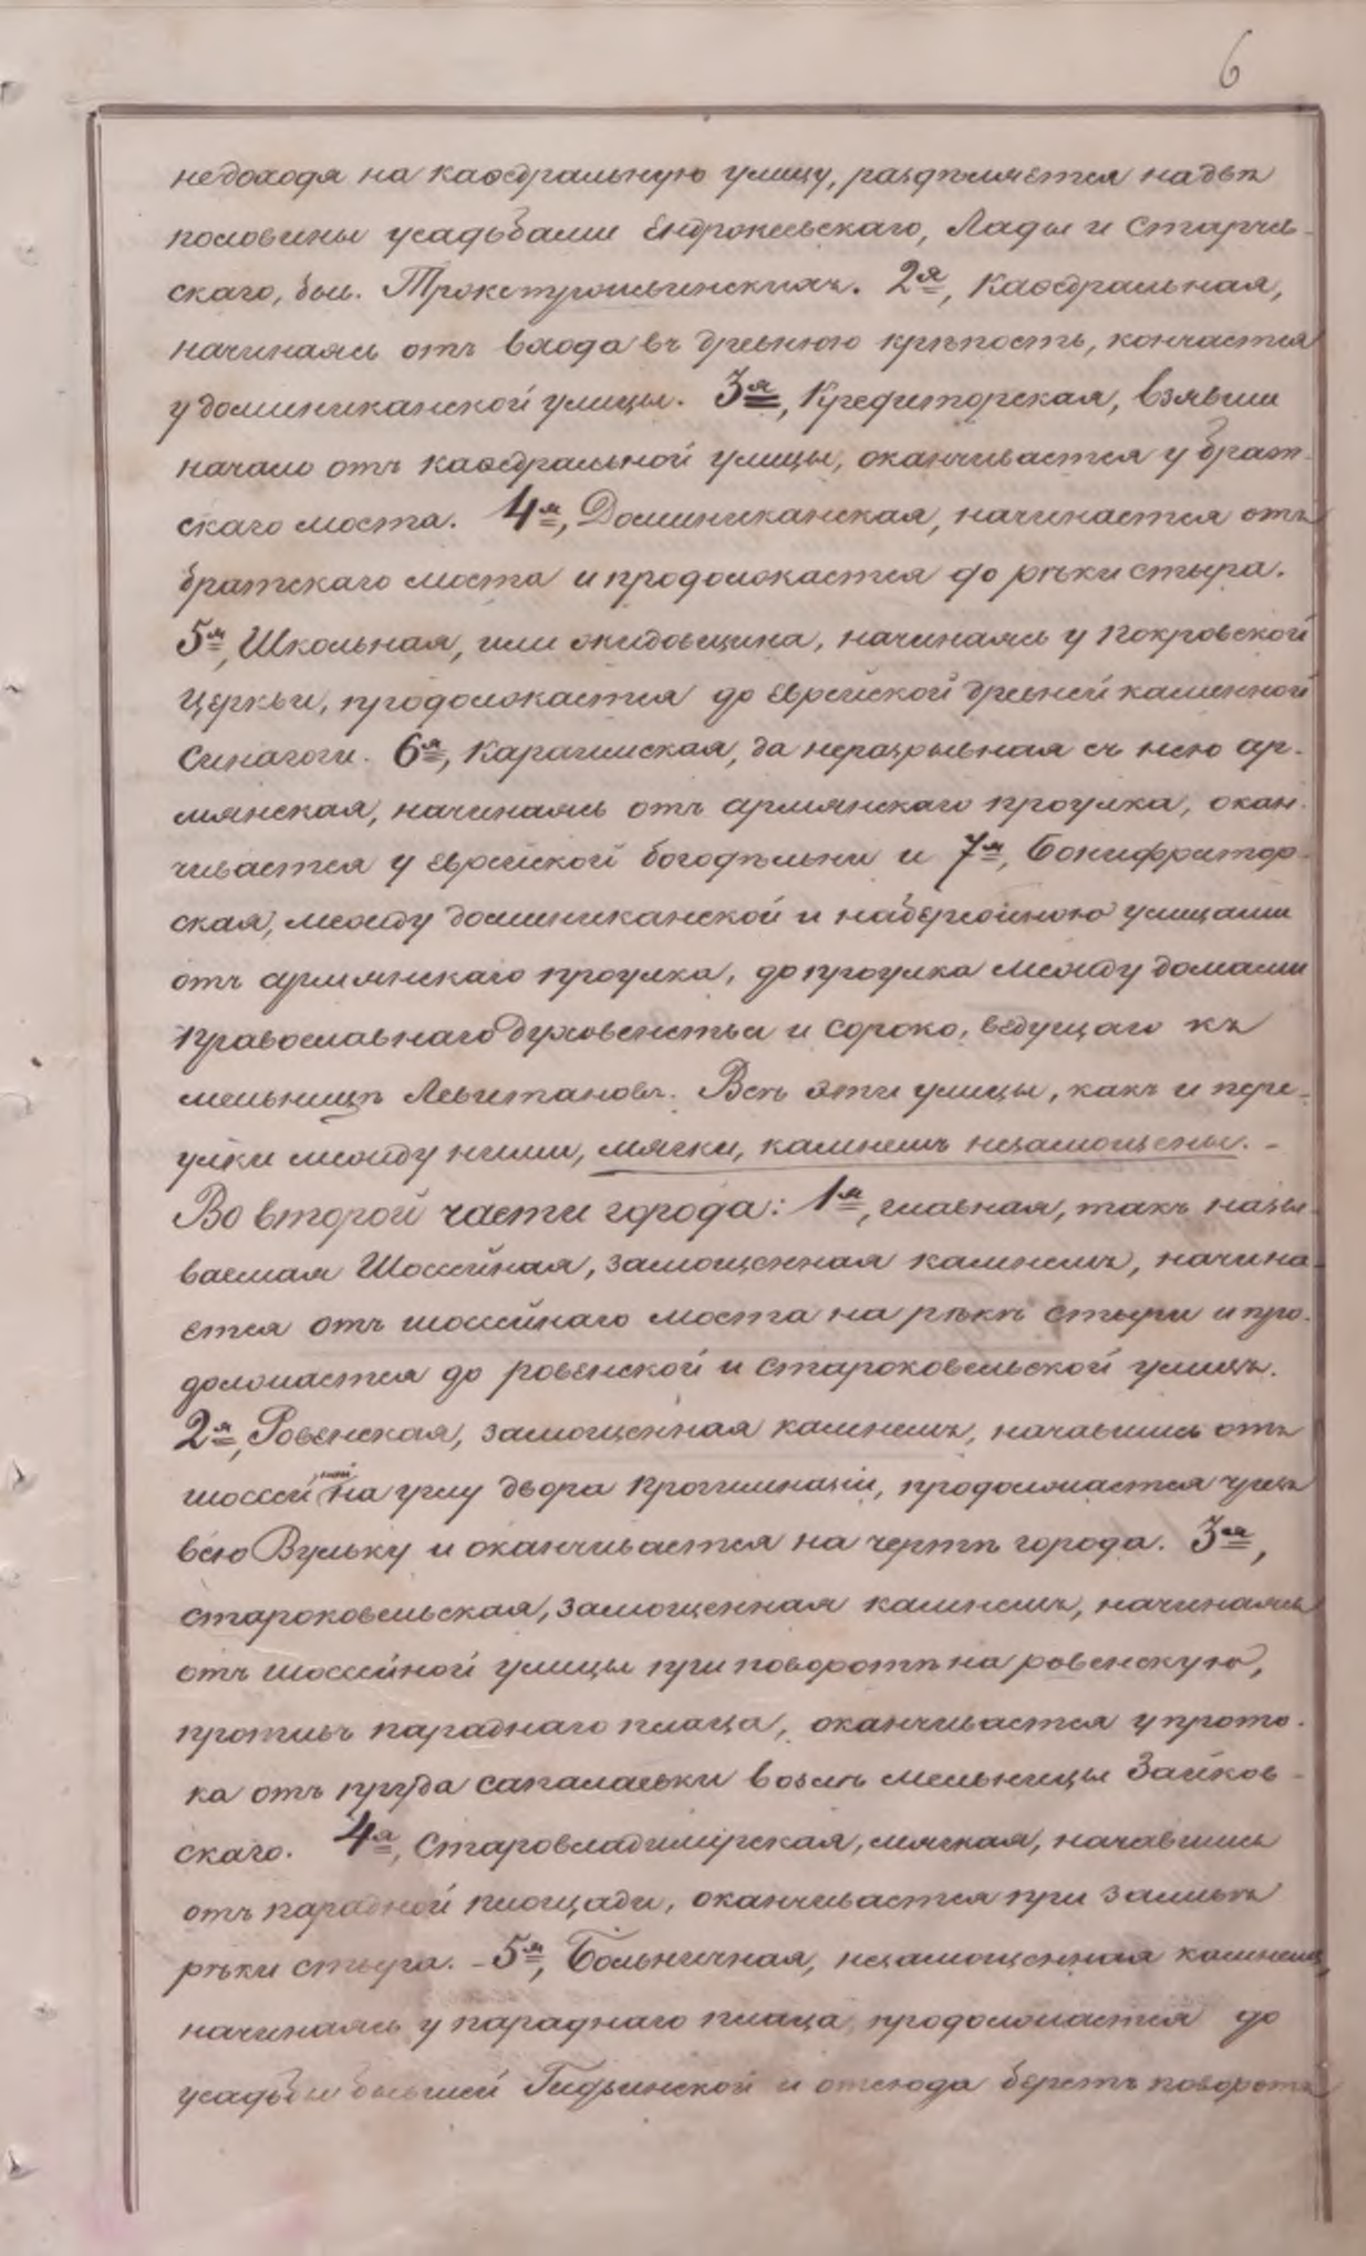 6
недоходя на каѳедральную улицу, раздѣляется на двѣ
половины усадьбами Ендрокельскаго, Лады и Старчев-
скаго, был. Трокструмльинскихъ. 2я, Каѳедральная,
начинаясь отъ входа въ древнюю крѣпость, кончается
у доминиканской улицы. 3я, Кредиторская, взявши
начало отъ каѳедральной улицы, оканчивается у брат-
скаго моста. 4я, Доминиканская, начинается отъ
братскаго моста и продолжается до рѣки стыра.
5я, Школьная, или жидовщина, начинаясь у покровской
церкви, продолжается до еврейской древней каменной
синагоги. 6я, Караимская, да неразрывная съ нею ар-
мянская, начинаясь отъ армянскаго проулка, окан-
чивается у еврейской богодѣльни и 7я, Бонифратор-
ская, между доминиканской и набережною улицами
отъ армянскаго проулка, до проулка между домами
православнаго духовенства и Сороко, ведущаго къ
мельницѣ Левитановъ. Всѣ эти улицы, какъ и пере-
улки между ними, мягки, камнемъ незамощены. -
Во второй части города: 1я, главная, такъ назы-
ваемая Шоссейная, замощенная камнемъ, начина-
ется отъ шоссейнаго моста на рѣкѣ стыри и про-
должается до ровенской и староковельской улицъ.
2я, Ровенская, замощенная камнемъ, начавшись отъ
шоссейной на углу двора прогимназіи, продолжается чрезъ
всю Вульку и оканчивается на чертѣ города. 3я,
староковельская, замощенная камнемъ, начинаясь
отъ шоссейной улицы при поворотѣ на ровенскую,
противъ параднаго плаца, оканчивается у прото-
ка отъ пруда сапалаевки возлѣ мельницы Зайков-
скаго. 4я, Старовладимірская, мягкая, начавшись
отъ парадной площади, оканчивается при заливѣ
рѣки стыра. - 5я, Больничная, незамощенная камнемъ,
начинаясь у параднаго плаца, продолжается до
усадьбы бывшей и отсюда беретъ поворотъ